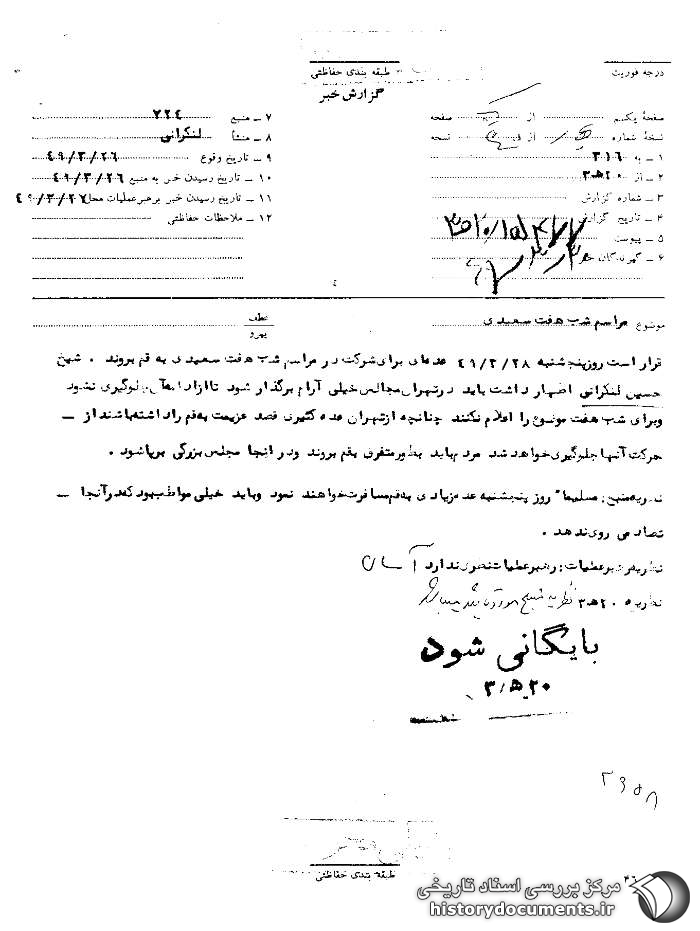 درجه فوریت
طبقه بندی حفاظتی
گزارش خبر
صفحهٔ یکم از صفحه
نسخهٔ شماره از نسخه
۱ ـ به ۳۱۶
۲ ـ از ۲۰ﻫ۳
۳ ـ شماره گزارش
۴ ـ تاریخ گزارش
۵ ـ پیوست
۶ ـ گیرندگان خبر
۷ ـ منبع ۷۲۴
۸ ـ منشأ لنکرانی
۹ ـ تاریخ وقوع ۴۹/۳/۲۶
۱۰ ـ تاریخ رسیدن خبر به منبع ۴۹/۳/۲۶
۱۱ ـ تاریخ رسیدن خبر برهبرعملیات محل ۴۹/۳/۲۷
۱۲ ـ ملاحظات حفاظتی
موضوع مراسم شب هفت سعیدی
عطف
پیرو
قرار است روز پنجشنبه ۴۹/۳/۲۸ عده‌ای برای شرکت در مراسم شب هفت سعیدی به قم بروند . شیخ
حسین لنکرانی اظهار داشت باید در تهران مجالس خیلی آرام برگذار شود تا از ادامه آن جلوگیری نشود
وبرای شب هفت موضوع را اعلام نکنند چنانچه از تهران عده کثیری قصد عزیمت به قم را داشته باشند از ـ
حرکت آنها جلوگیری خواهد شد مردم باید بطور متفرق بقم بروند و در انجا مجلس بزرگی برپا شود .
نظریه منبع : مسلما" روز پنجشنبه عده زیادی به قم مسافرت خواهند نمود وباید خیلی مواظب بود که در آنجا ـ
تصادمی روی ندهد .
نظریه رهبر عملیات : رهبر عملیات نظری ندارد
نظریه ۲۰ﻫ۳ نظریه منبع مورد تأیید میباشد
بایگانی شود
۲۰ﻫ۳
طبقه بندی حفاظتی
۴۶
مرکز بررسی اسناد تاریخی
historydocuments.ir